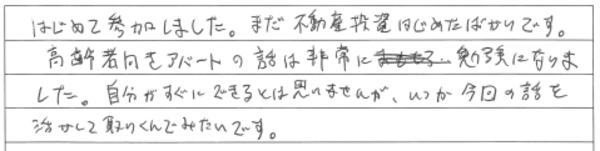 はじめて参加しました。まだ不動産投資はじめたばかりです。
高齢者向きアパートの話は非常に勉強になりま
した。自分がすぐにできるとは思いませんが、いつか今回の話を
活かして取りくんでみたいです。